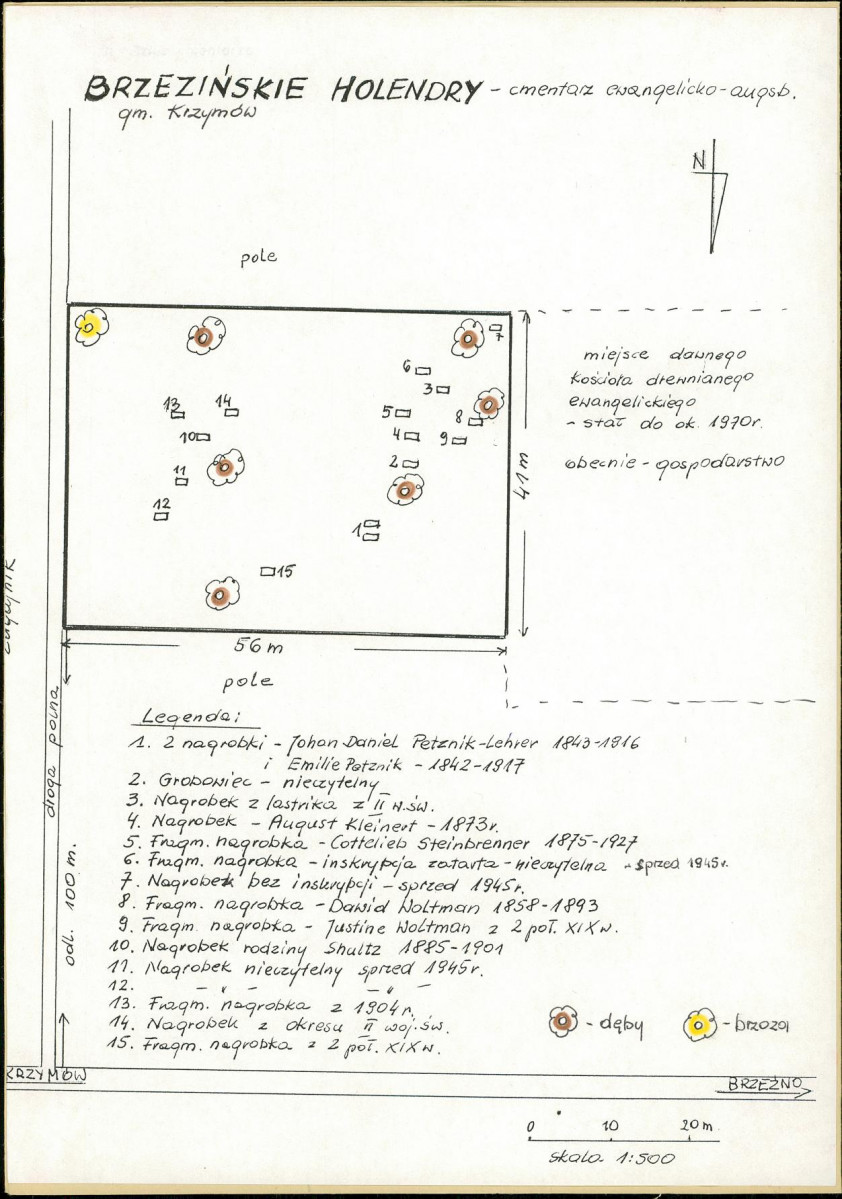 BRZEZIŃSKIE HOLENDRY - cmentarz ewangelicko-augsb.
gm. Krzymów
N
pole
7
6
3
13
14
5
8
10
4
9
2
11
12
1
15
miejsce dawnego
kościoła drewnianego
ewangelickiego
- stał do ok. 1970r.
obecnie - gospodarstwo
41 m
56 m
pole
droga polna
odl. 100 m.
Legenda:
1. 2 nagrobki - Johan Daniel Petznik-Lehrer 1843-1916
i Emilie Petznik - 1842-1917
2. Grobowiec - nieczytelny
3. Nagrobek z lastrika z II w.św.
4. Nagrobek - August Kleinert - 1873r.
5. Fragm. nagrobka - Gottelieb Steinbrenner 1875-1927
6. Fragm. nagrobka - inskrypcja zatarta - nieczytelna - sprzed 1945r.
7. Nagrobek bez inskrypcji - sprzed 1945r.
8. Fragm. nagrobka - Dawid Woltman 1858-1893
9. Fragm. nagrobka - Justine Woltman z 2 poł. XIXw.
10. Nagrobek rodziny Shultz 1885-1901
11. Nagrobek nieczytelny sprzed 1945r.
12. - " - - " -
13. Fragm. nagrobka z 1904r.
14. Nagrobek z okresu II woj.św.
15. Fragm. nagrobka z 2 poł. XIXw.
- dęby
- brzoza
KRZYMÓW
BRZEŹNO
0 10 20 m
skala 1:500